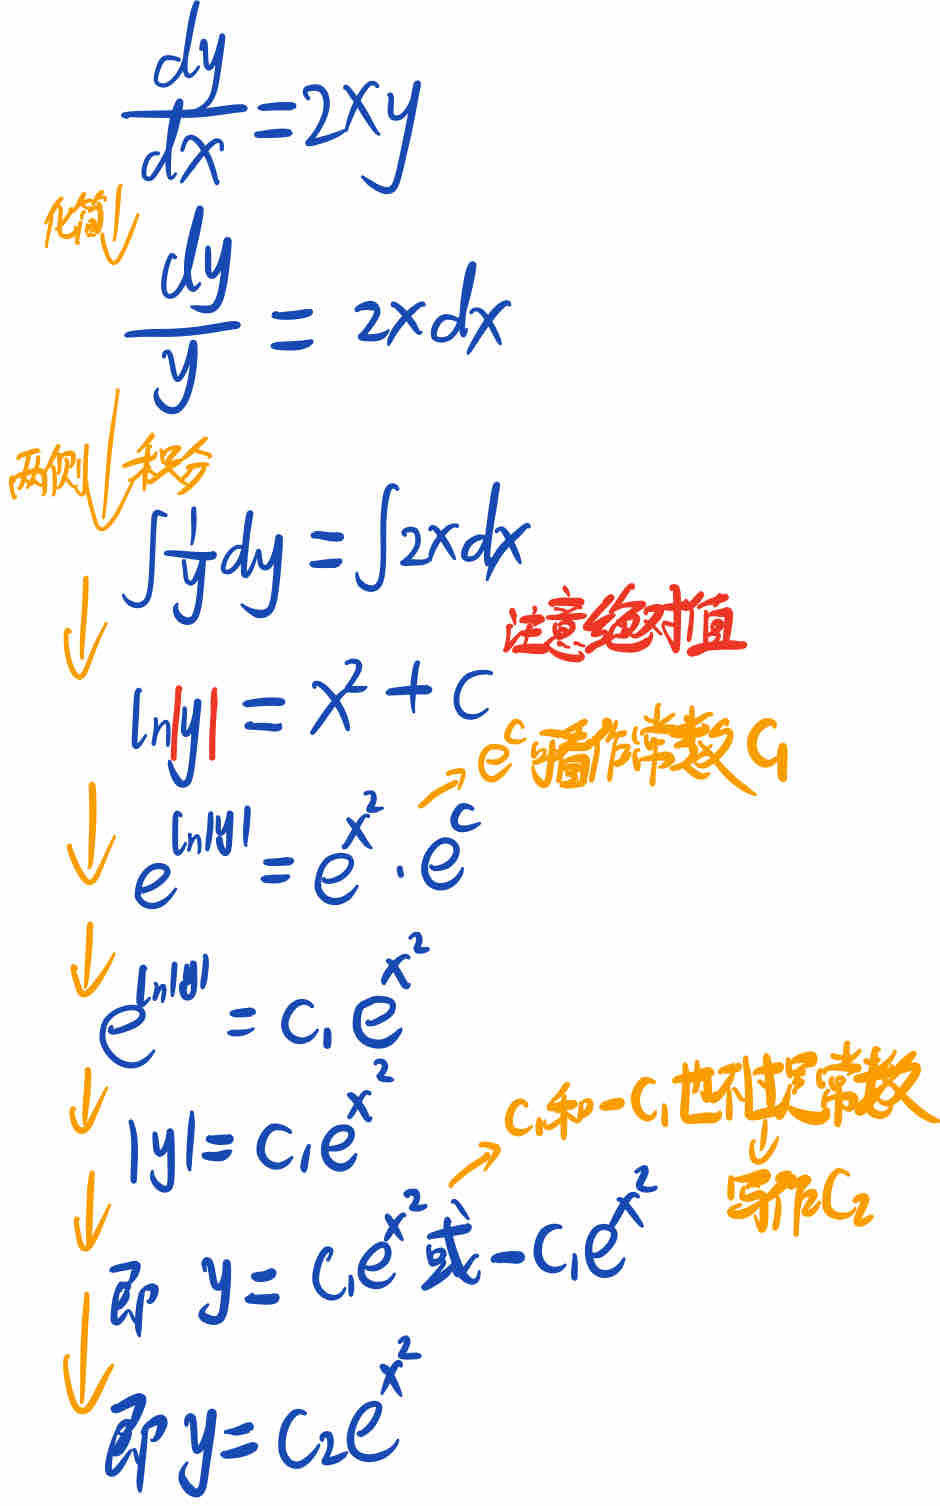 dy/dx = 2xy
化简
dy/y = 2xdx
两侧积分
∫ 1/y dy = ∫ 2xdx
注意绝对值
ln|y| = x² + C
e^C 看作常数 C₁
e^(ln|y|) = e^(x²) · e^C
e^(ln|y|) = C₁e^(x²)
|y| = C₁e^(x²)
C₁和-C₁也都是常数
写作C₂
即 y = C₁e^(x²) 或 -C₁e^(x²)
即 y = C₂e^(x²)